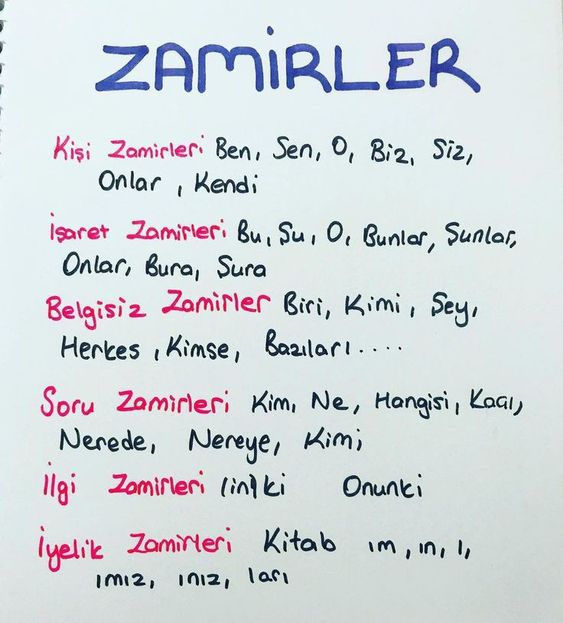 ZAMİRLER
Kişi Zamirleri Ben, Sen, O, Biz, Siz,
Onlar, Kendi
İşaret Zamirleri Bu, Su, O, Bunlar, Sunlar,
Onlar, Bura, Sura
Belgisiz Zamirler Biri, Kimi, Sey,
Herkes, Kimse, Bazıları....
Soru Zamirleri Kim, Ne, Hangisi, Kaçı,
Nerede, Nereye, Kimi
İlgi Zamirleri (in)ki Onunki
İyelik Zamirleri Kitab ım, ın, ı,
ımız, ınız, ları